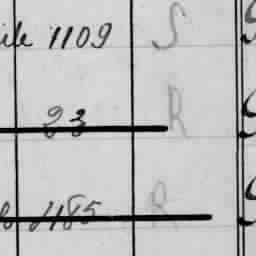 1109 S
23 R
1185 R